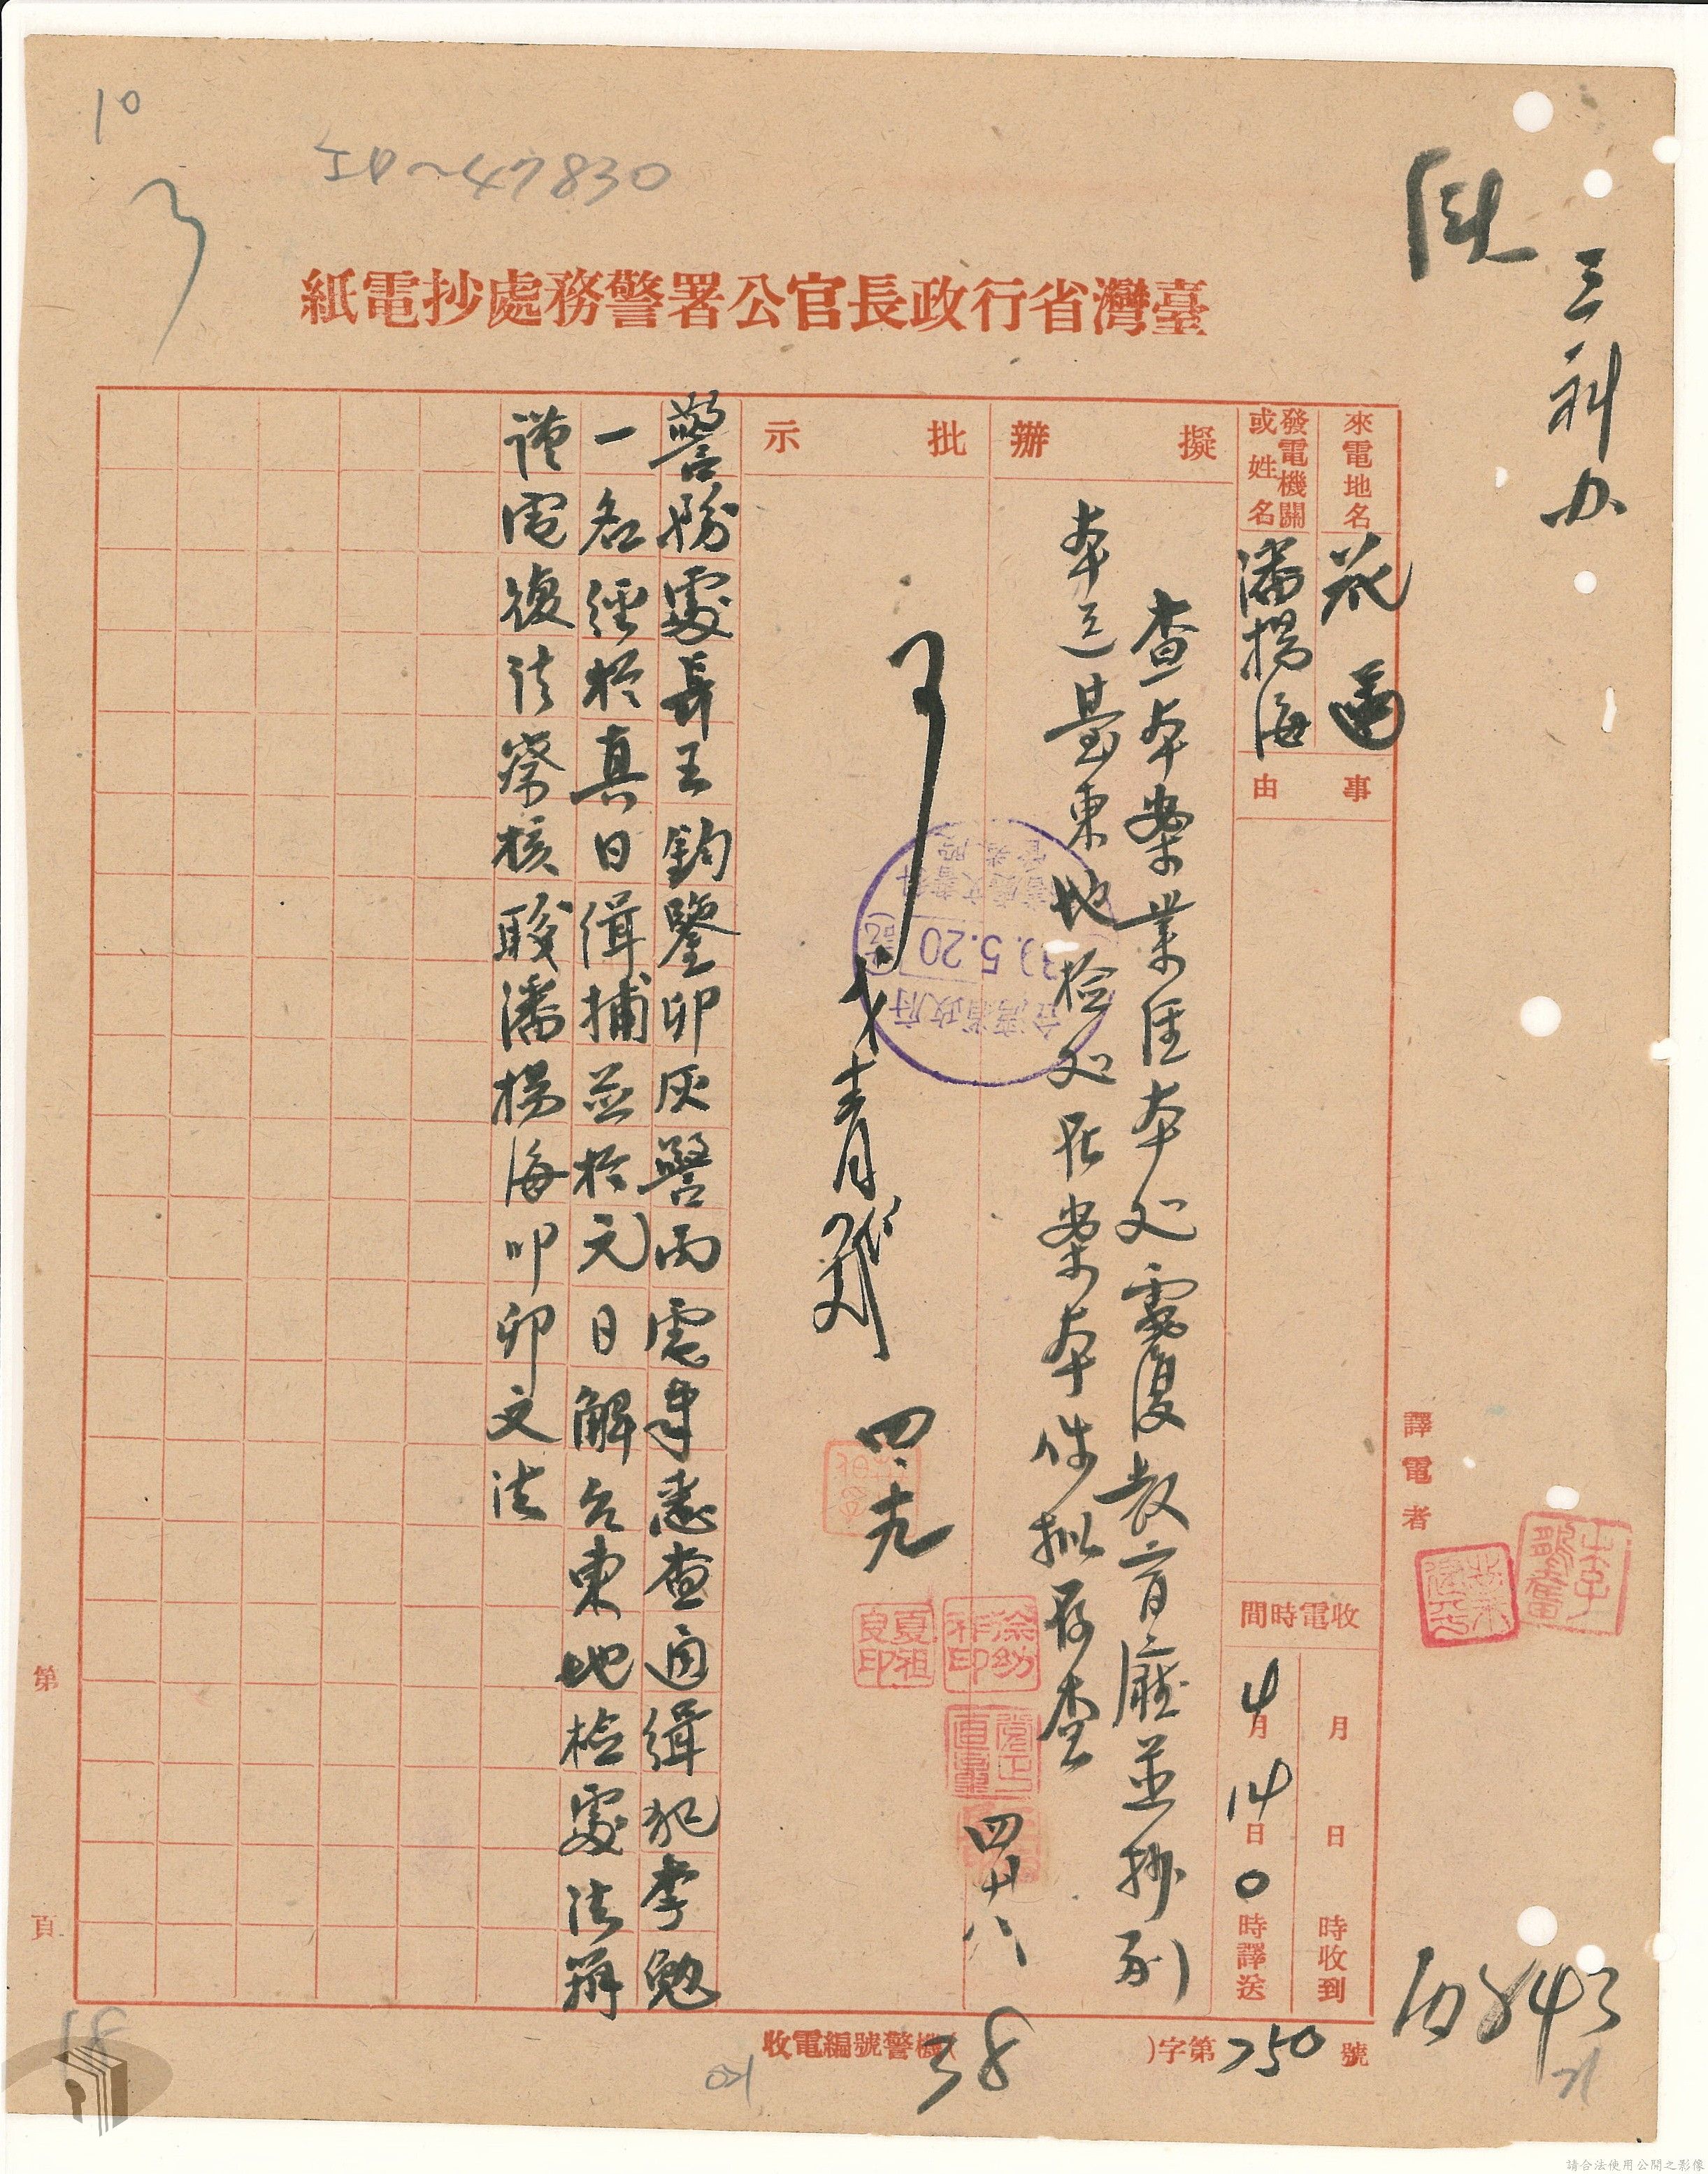 三科办
臺灣省行政長官公署警務處抄電紙
來電地名
花蓮
發電機關或姓名
潘楊海
事由
收電時間
月日時收到
4月14日0時譯送
譯電者
擬辦
查本案業經本处電復教育廳並抄副
本送臺東地檢处在案本件拟存查
四十八
批示
四.十九
警務處長王鈞鑒卯灰警丙電奉悉查通緝犯李勉
一名經於真日緝捕並於元日解台東地檢處法辦
謹電復請察核職潘楊海叩卯文法
收電編號警機(38)字第750號
第頁
10
47830
5.20
徐幼祥印
夏祖良印
請合法使用公開之影像